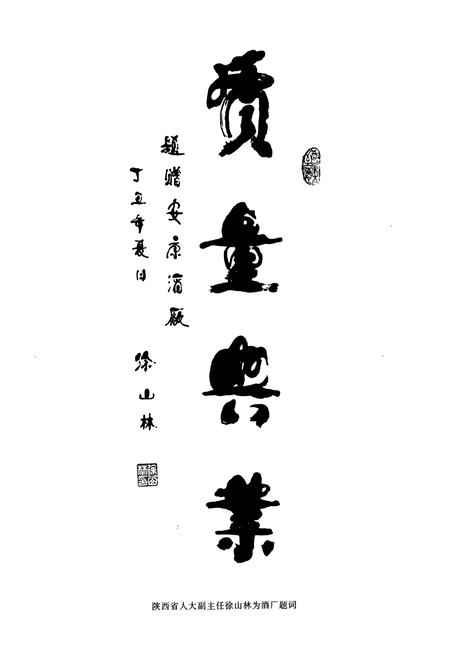 质量兴业
题赠安康酒厂
丁丑年夏日
徐山林
陕西省人大副主任徐山林为酒厂题词